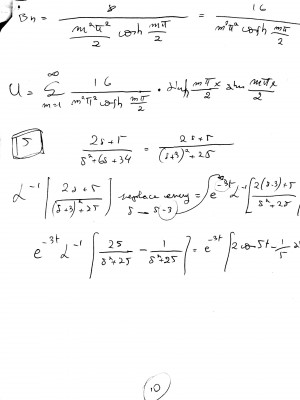 Bn = 8 / (m²π²/2 cosh mπ/2) = 16 / (m²π² cosh mπ/2)
U = ∞ Σ m=1 16 / (m²π² cosh mπ/2) · sinh mπx/2 sin mπx/2
5 (2s+5) / (s²+6s+34) = (2s+5) / ((s+3)²+25)
L⁻¹ [ (2s+5) / ((s+3)²+25) ] replace every s → s-3 = e^-3t L⁻¹ [ (2(s-3)+5) / (s²+25)
e^-3t L⁻¹ [ 2s / (s²+25) - 1 / (s²+25) ] = e^-3t [ 2 cos 5t - 1/5
10